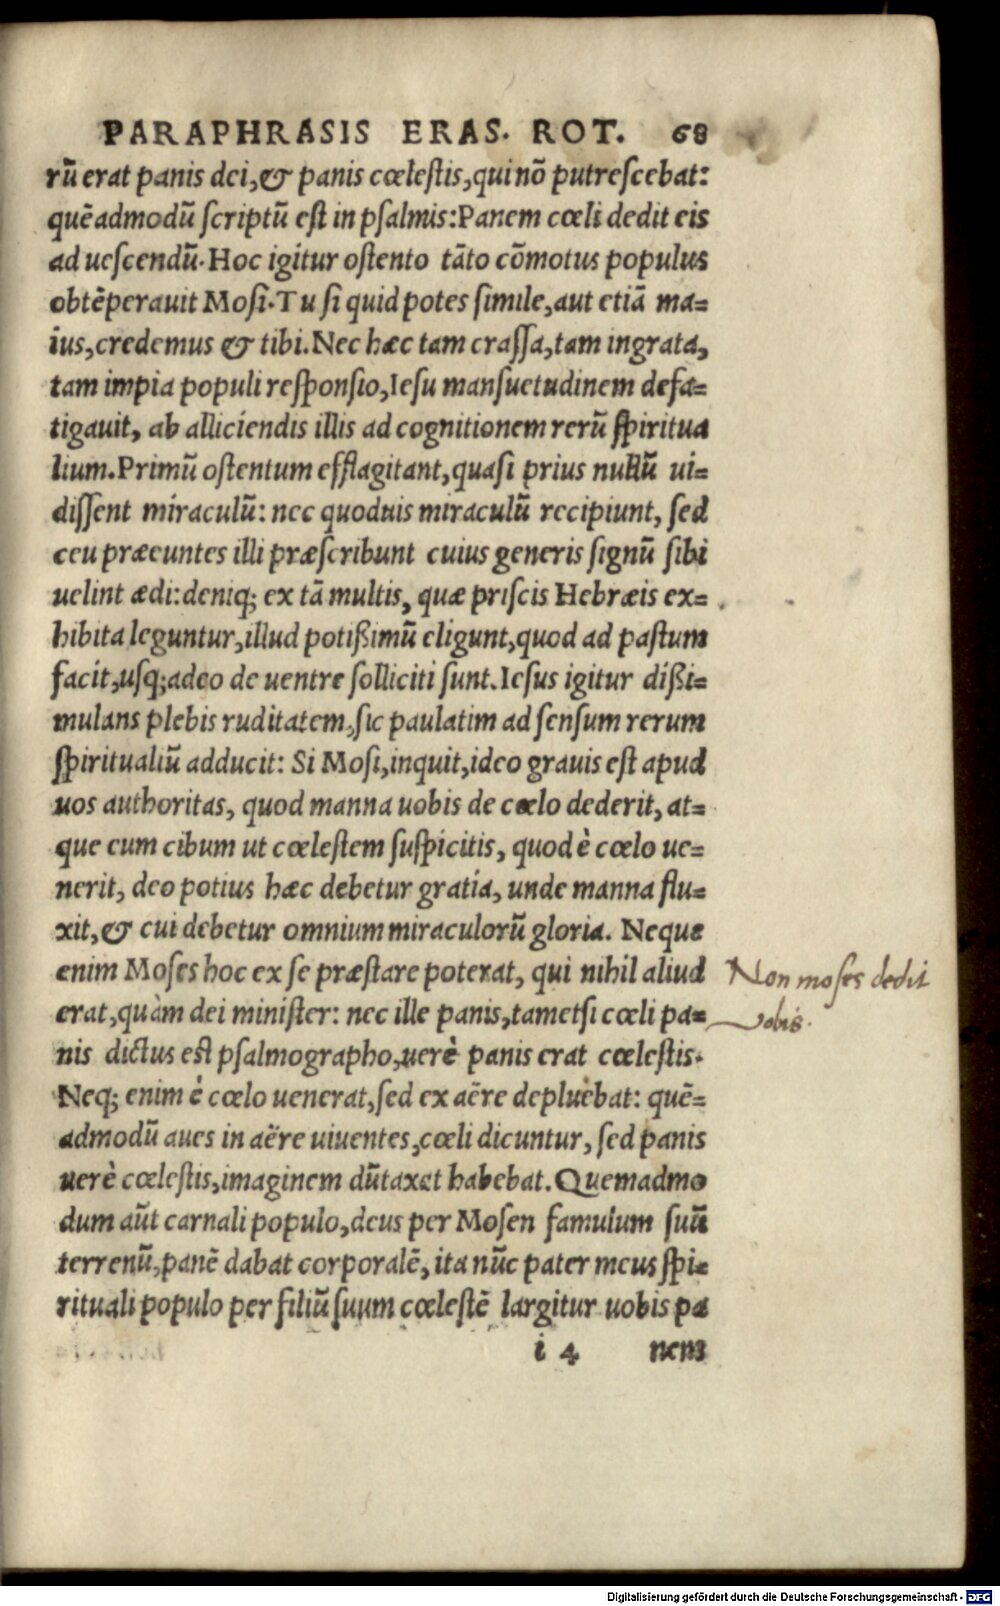 PARAPHRASIS ERAS. ROT. 68
rũ erat panis dei, & panis cœlestis, qui nõ putrescebat:
quẽadmodũ scriptũ est in psalmis: Panem cœli dedit eis
ad uescendũ. Hoc igitur ostento tãto cõmotus populus
obtẽperauit Mosi. Tu si quid potes simile, aut etiã ma=
ius, credemus & tibi. Nec hæc tam crassa, tam ingrata,
tam impia populi responsio, Iesu mansuetudinem defa=
tigauit, ab alliciendis illis ad cognitionem rerũ spiritua
lium. Primũ ostentum efflagitant, quasi prius nullũ ui=
dissent miraculũ: nec quoduis miraculũ recipiunt, sed
ceu præeuntes illi præscribunt cuius generis signũ sibi
uelint ædi: deniq; ex tã multis, quæ priscis Hebræis ex=
hibita leguntur, illud potißimũ eligunt, quod ad pastum
facit, usq; adeo de uentre solliciti sunt. Iesus igitur dißi=
mulans plebis ruditatem, sic paulatim ad sensum rerum
spiritualiũ adducit: Si Mosi, inquit, ideo grauis est apud
uos authoritas, quod manna uobis de cœlo dederit, at=
que eum cibum ut cœlestem suspicitis, quod è cœlo ue=
nerit, deo potius hæc debetur gratia, unde manna flu=
xit, & cui debetur omnium miraculorũ gloria. Neque
enim Moses hoc ex se præstare poterat, qui nihil aliud
erat, quàm dei minister: nec ille panis, tametsi cœli pa=
nis dictus est psalmographo, uerè panis erat cœlestis.
Neq; enim è cœlo uenerat, sed ex aëre depluebat: quẽ=
admodũ aues in aëre uiuentes, cœli dicuntur, sed panis
uerè cœlestis, imaginem dũtaxat habebat. Quemadmo
dum aũt carnali populo, deus per Mosen famulum suũ
terrenũ, panẽ dabat corporalẽ, ita nũc pater meus spi=
rituali populo per filiũ suum cœlestẽ largitur uobis pa
i 4 nem
Non moses dedit
vobis.
Digitalisierung gefördert durch die Deutsche Forschungsgemeinschaft - DFG